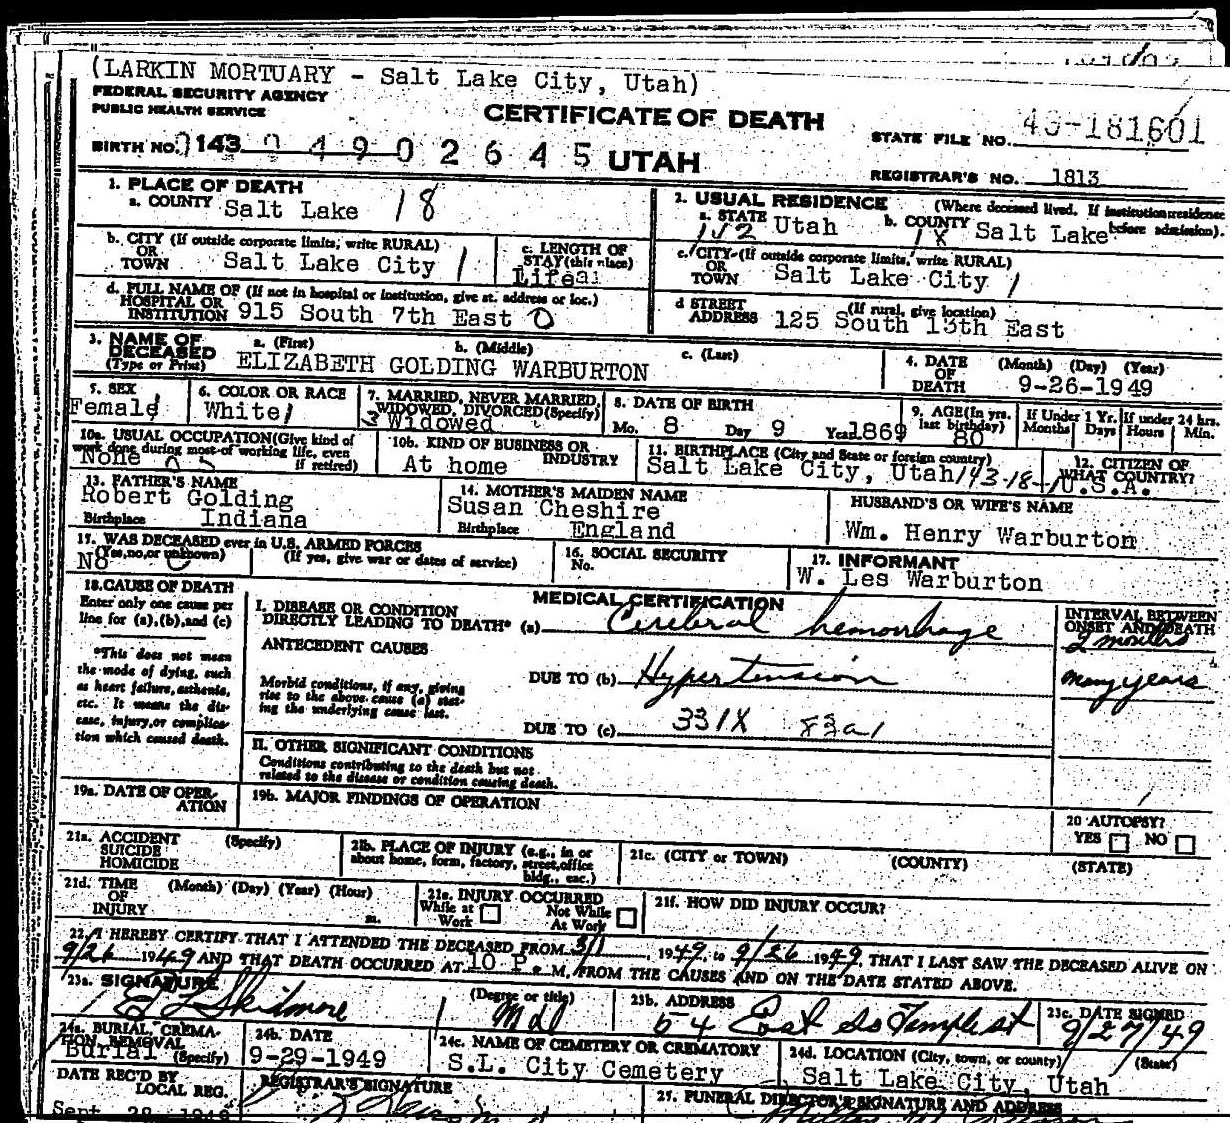 (LARKIN MORTUARY - Salt Lake City, Utah)
FEDERAL SECURITY AGENCY
PUBLIC HEALTH SERVICE
CERTIFICATE OF DEATH
STATE FILE NO. 49-181601
BIRTH NO. 143 0 4 9 0 2 6 4 5 UTAH
REGISTRAR'S NO. 1813
1. PLACE OF DEATH
a. COUNTY Salt Lake 18
2. USUAL RESIDENCE (Where deceased lived. If institution: residence before admission).
a. STATE Utah b. COUNTY 18 Salt Lake
152
b. CITY (If outside corporate limits, write RURAL)
OR
TOWN Salt Lake City 1
c. LENGTH OF
STAY (this place)
Life
c. CITY (If outside corporate limits, write RURAL)
OR
TOWN Salt Lake City 1
d. FULL NAME OF (If not in hospital or institution, give st. address or loc.)
HOSPITAL OR
INSTITUTION 915 South 7th East 0
d STREET (If rural, give location)
ADDRESS 125 South 13th East
3. NAME OF a. (First) b. (Middle) c. (Last)
DECEASED
(Type or Print) ELIZABETH GOLDING WARBURTON
4. DATE (Month) (Day) (Year)
OF
DEATH 9-26-1949
5. SEX
Female
6. COLOR OR RACE
White
7. MARRIED, NEVER MARRIED,
WIDOWED, DIVORCED (Specify)
Widowed
8. DATE OF BIRTH
Mo. 8 Day 9 Year 1869
9. AGE (In yrs.
last birthday)
80
If Under 1 Yr.
Months Days
If under 24 hrs.
Hours Min.
10a. USUAL OCCUPATION (Give kind of
work done during most of working life, even
if retired)
None
10b. KIND OF BUSINESS OR
INDUSTRY
At home
11. BIRTHPLACE (City and State or foreign country)
Salt Lake City, Utah 143-18-1
12. CITIZEN OF
WHAT COUNTRY?
U.S.A.
13. FATHER'S NAME
Robert Golding
Birthplace Indiana
14. MOTHER'S MAIDEN NAME
Susan Cheshire
Birthplace England
HUSBAND'S OR WIFE'S NAME
Wm. Henry Warburton
15. WAS DECEASED ever in U.S. ARMED FORCES
(Yes, no, or unknown) (If yes, give war or dates of service)
No
16. SOCIAL SECURITY
No.
17. INFORMANT
W. Les Warburton
18. CAUSE OF DEATH
Enter only one cause per
line for (a), (b), and (c)
*This does not mean
the mode of dying, such
as heart failure, asthenia,
etc. It means the dis-
ease, injury, or complica-
tion which caused death.
MEDICAL CERTIFICATION
I. DISEASE OR CONDITION
DIRECTLY LEADING TO DEATH* (a) Cerebral hemorrhage
INTERVAL BETWEEN
ONSET AND DEATH
2 months
ANTECEDENT CAUSES
Morbid conditions, if any, giving
rise to the above cause (a) stat-
ing the underlying cause last.
DUE TO (b) Hypertension
many years
DUE TO (c) 331X 83a1
II. OTHER SIGNIFICANT CONDITIONS
Conditions contributing to the death but not
related to the disease or condition causing death.
19a. DATE OF OPER-
ATION
19b. MAJOR FINDINGS OF OPERATION
20 AUTOPSY?
YES NO
21a. ACCIDENT (Specify)
SUICIDE
HOMICIDE
21b. PLACE OF INJURY (e.g., in or
about home, form, factory, street, office
bldg., etc.)
21c. (CITY or TOWN) (COUNTY) (STATE)
21d. TIME (Month) (Day) (Year) (Hour)
OF
INJURY m.
21e. INJURY OCCURRED
While at Work Not While At Work
21f. HOW DID INJURY OCCUR?
22. I HEREBY CERTIFY THAT I ATTENDED THE DECEASED FROM 3/1, 1949, to 9/26 1949, THAT I LAST SAW THE DECEASED ALIVE ON
9/26 1949 AND THAT DEATH OCCURRED AT 10 P. M, FROM THE CAUSES AND ON THE DATE STATED ABOVE.
23a. SIGNATURE (Degree or title)
E L Skidmore Md
23b. ADDRESS
54 East So Temple st
23c. DATE SIGNED
9/27/49
24a. BURIAL, CREMA-
TION, REMOVAL
Burial (Specify)
24b. DATE
9-29-1949
24c. NAME OF CEMETERY OR CREMATORY
S.L. City Cemetery
24d. LOCATION (City, town, or county) (State)
Salt Lake City, Utah
DATE REC'D BY
LOCAL REG.
REGISTRAR'S SIGNATURE
25. FUNERAL DIRECTOR'S SIGNATURE AND ADDRESS